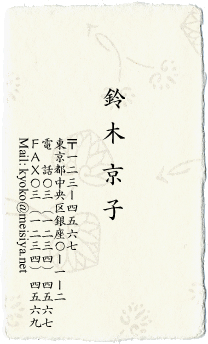 鈴木京子
〒一二三ー四五六七
東京都中央区銀座〇ー一ー二
電　話〇三（一二三四）四五六七
ＦＡＸ〇三（一二三四）四五六九
Mail: kyoko@meisiya.net